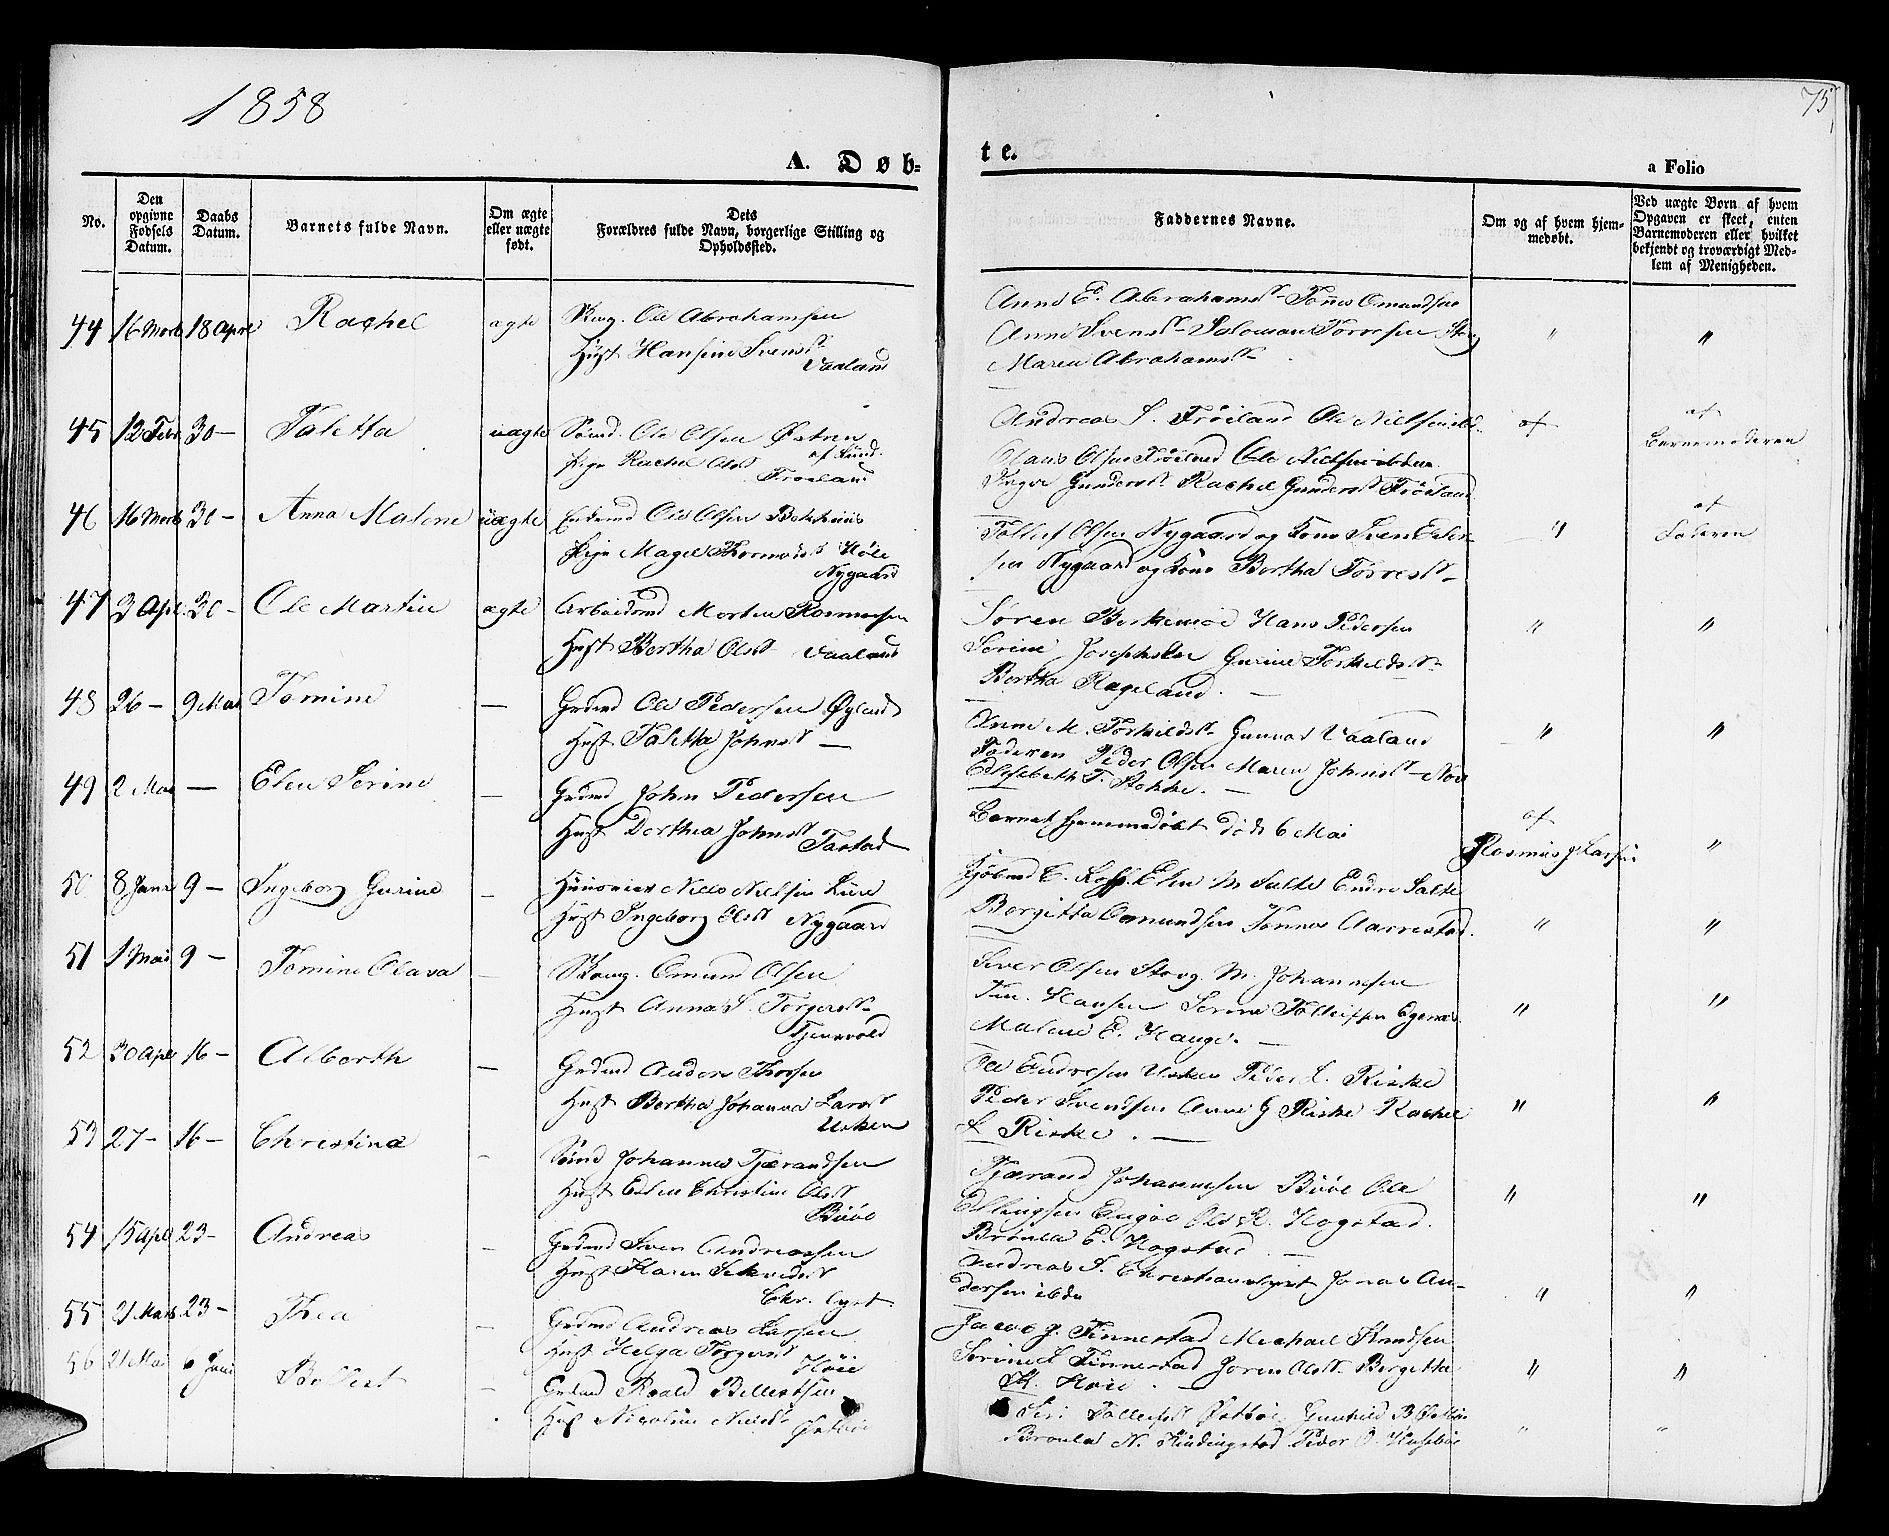 1858
75
A. Døb-
te.
a Folio
No.
Den opgivne Fødsels Datum.
Daabs Datum.
Barnets fulde Navn.
Om ægte eller uægte født.
Dets Forældres fulde Navn, borgerlige Stilling og Opholdssted.
Faddernes Navne.
Om og af hvem hjemmedøbt.
Ved uægte Born af hvem Opgaven er skeet, enten Barnemoderen eller hvilket bekjendt og troværdigt Medlem af Menigheden.
44 16 Marts 18 April Rachel ægte Ole Abrahamsen
Hust Hansine Svensd Vaaland
Anne E. Abrahamsd Tønes Omundsen
Anne Svensd Salomon Torrsen
Maren Abrahamsd
" "
45 12 Febr 30 - Taletta uægte Sømd. Ole Olsen Østren
Pige Rachel Olsd Frøeland
Andreas S. Frøiland Ole Nielsen ibd.
Claus Olsen Frøiland Ole Nielsen ibden
Inger Gundersd Rachel Gundersd Frøiland
af
af Barnemoderen
46 16 Marts 30 - Anna Malene uægte Ole Olsen
Pige Magel Thormodsd Høle
Nygaard
Tollef Olsen Nygaard og Kone Sven Eder-
sen Nygaard og Kone Bertha Torresd
"
af Faderen
47 3 Apl. 30 - Ole Martin ægte Arbeidsmd Morten Rasmusen
Hust Bertha Olsd Vaaland
Søren Berkemoe Hans Pedersen
Serine Josephsen Gurine Torkildsd
Bertha Rageland.
" "
48 26 - 9 Mai Tomine — Grdmd Ole Pedersen Øgland
Hust Taletta Johnsd —
Anne M. Torkildsd Gunnar Vaaland
Faderen Peder Olsen Maren Johnsd
Elisebeth T. Stokke.
" "
49 2 Mai — Elen Serine — Grdmd John Pedersen
Hust Dorthea Johnsd Tastad
Barnet hjemmedøbt død 6 Mai
af
Rasmus J. Larsen
"
50 8 Janr 9 - Ingeborg Gurine — Niels Nielsen Lura
Hust Ingeborg Olsd Nygaard
Elen M Salte Endre Salte
Bergitta Omundsen Tønnes Aarrestad.
" "
51 1 Mai 9 - Tomine Olava — Omund Olsen
Hust Anna S. Torgersd
Tjensvold
Siver Olsen M. Johannesen
Hansen Serine Tolleifsen Egenæs.
Malene E. Hauge.
" "
52 30 Apl 16 - Alberth — Grdmd Anders Thorsen
Hust Bertha Johanna Larsd
Usken
Ole Endresen Usken Peder L. Riske
Peder Svendsen Anne G Riske Rachel
L Riske.
" "
53 27 - 16 - Christina — Sømd Johannes Tjærandsen
Hust Elen Christine Olsd
Buøe
Tjærand Johannesen Buøe Ole
Ellingsen Engøe Ole R. Hogstad.
Brønla E. Hogstad.
" "
54 15 Apl 23 - Andreas — Grdmd Sven Andreassen
Hust Karen
Chr. Lyst.
Andreas S. Christianslyst Jonas An-
dersen ibdn
" "
55 21 Marts 23 - Thea — Grdmd Andreas Larsen
Hust Helga Torgersd
Høie
Jacob J. Finnestad Michael Knudsen
Serine L Finnestad Joren Olsd Bergetta
K. Høie.
" "
56 21 Mai 6 Juni Bellest — Grdmd Roald Bellestsen
Hust Nicoline Østbøe
Siri Tolleifsd Østbøe Gunhild B Østbøe
Bronla N. Rindingstad Peder O. Husebøe
" "